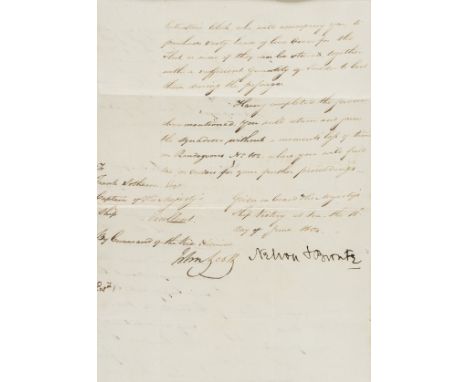 Clerk who will accompany you to
purchase sixty head of live oxen for the
Fleet or more if they can be stowed together
with a sufficient quantity of fodder to last
them during the passage
Having completed the service
before mentioned you will return and join
the squadron without a moments loss of time
on Rendezvous No. 102 where you will find
me or orders for your further proceedings.
To
Frank Sotheron Esqr
Captain of His Majesty's
Ship Excellent
Given on board His Majestys
Ship Victory at Sea the
Day of June 1804
By Command of the Vice Admiral
John Scott
Nelson & Bronte